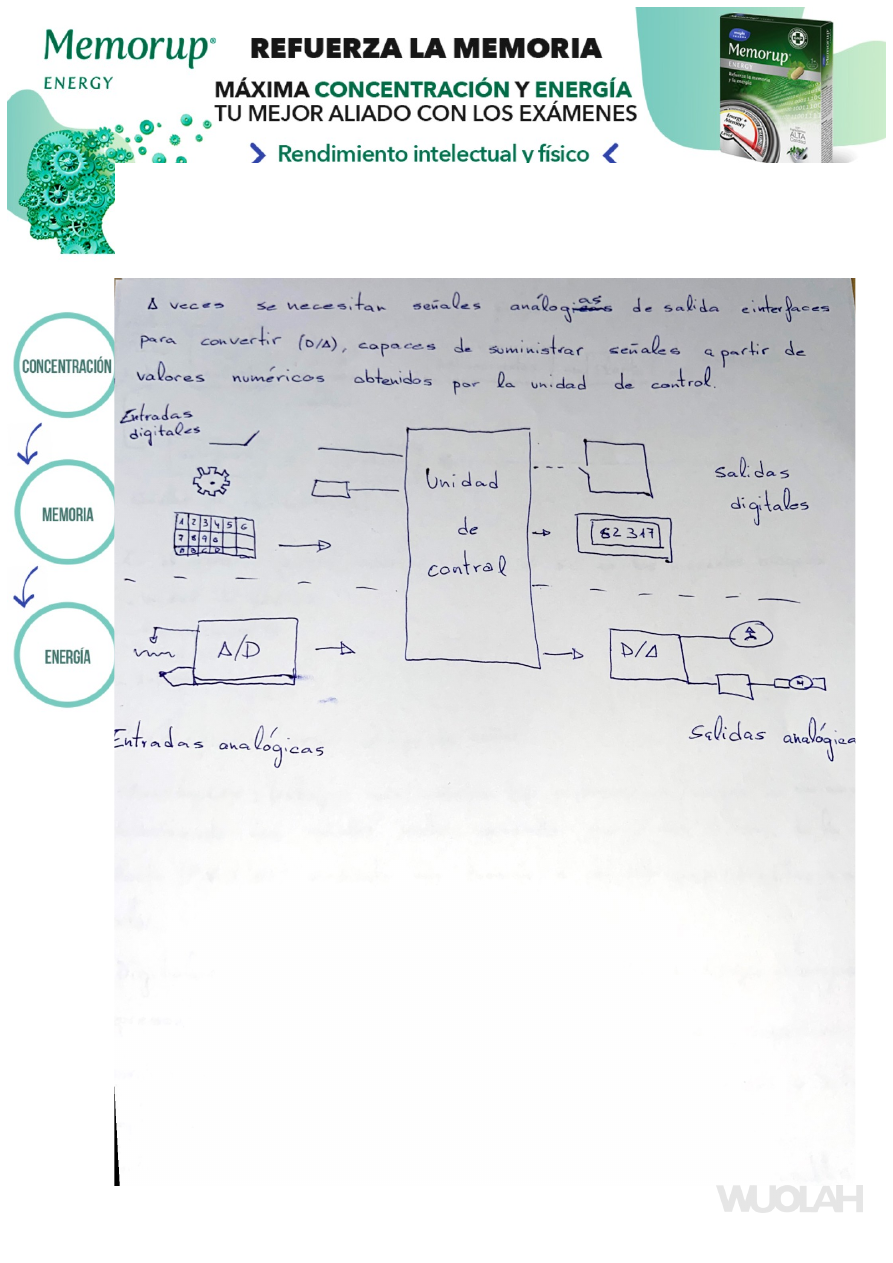 Memorup®
ENERGY
REFUERZA LA MEMORIA
MÁXIMA CONCENTRACIÓN Y ENERGÍA
TU MEJOR ALIADO CON LOS EXÁMENES
Rendimiento intelectual y físico
Memorup
ENERGY
Refuerza la memoria
y la energía
Energy +
Memory
ALTA
A veces se necesitan señales análogicas de salida e interfaces
para convertir (D/A), capaces de suministrar señales a partir de
valores numéricos obtenidos por la unidad de control.
CONCENTRACIÓN
MEMORIA
ENERGÍA
Entradas
digitales
1 2 3 4 5 6
7 8 9 0
A B C D
Unidad
de
control
62 317
Salidas
digitales
A/D
D/A
M
Entradas analógicas
Salidas analógica
WUOLAH